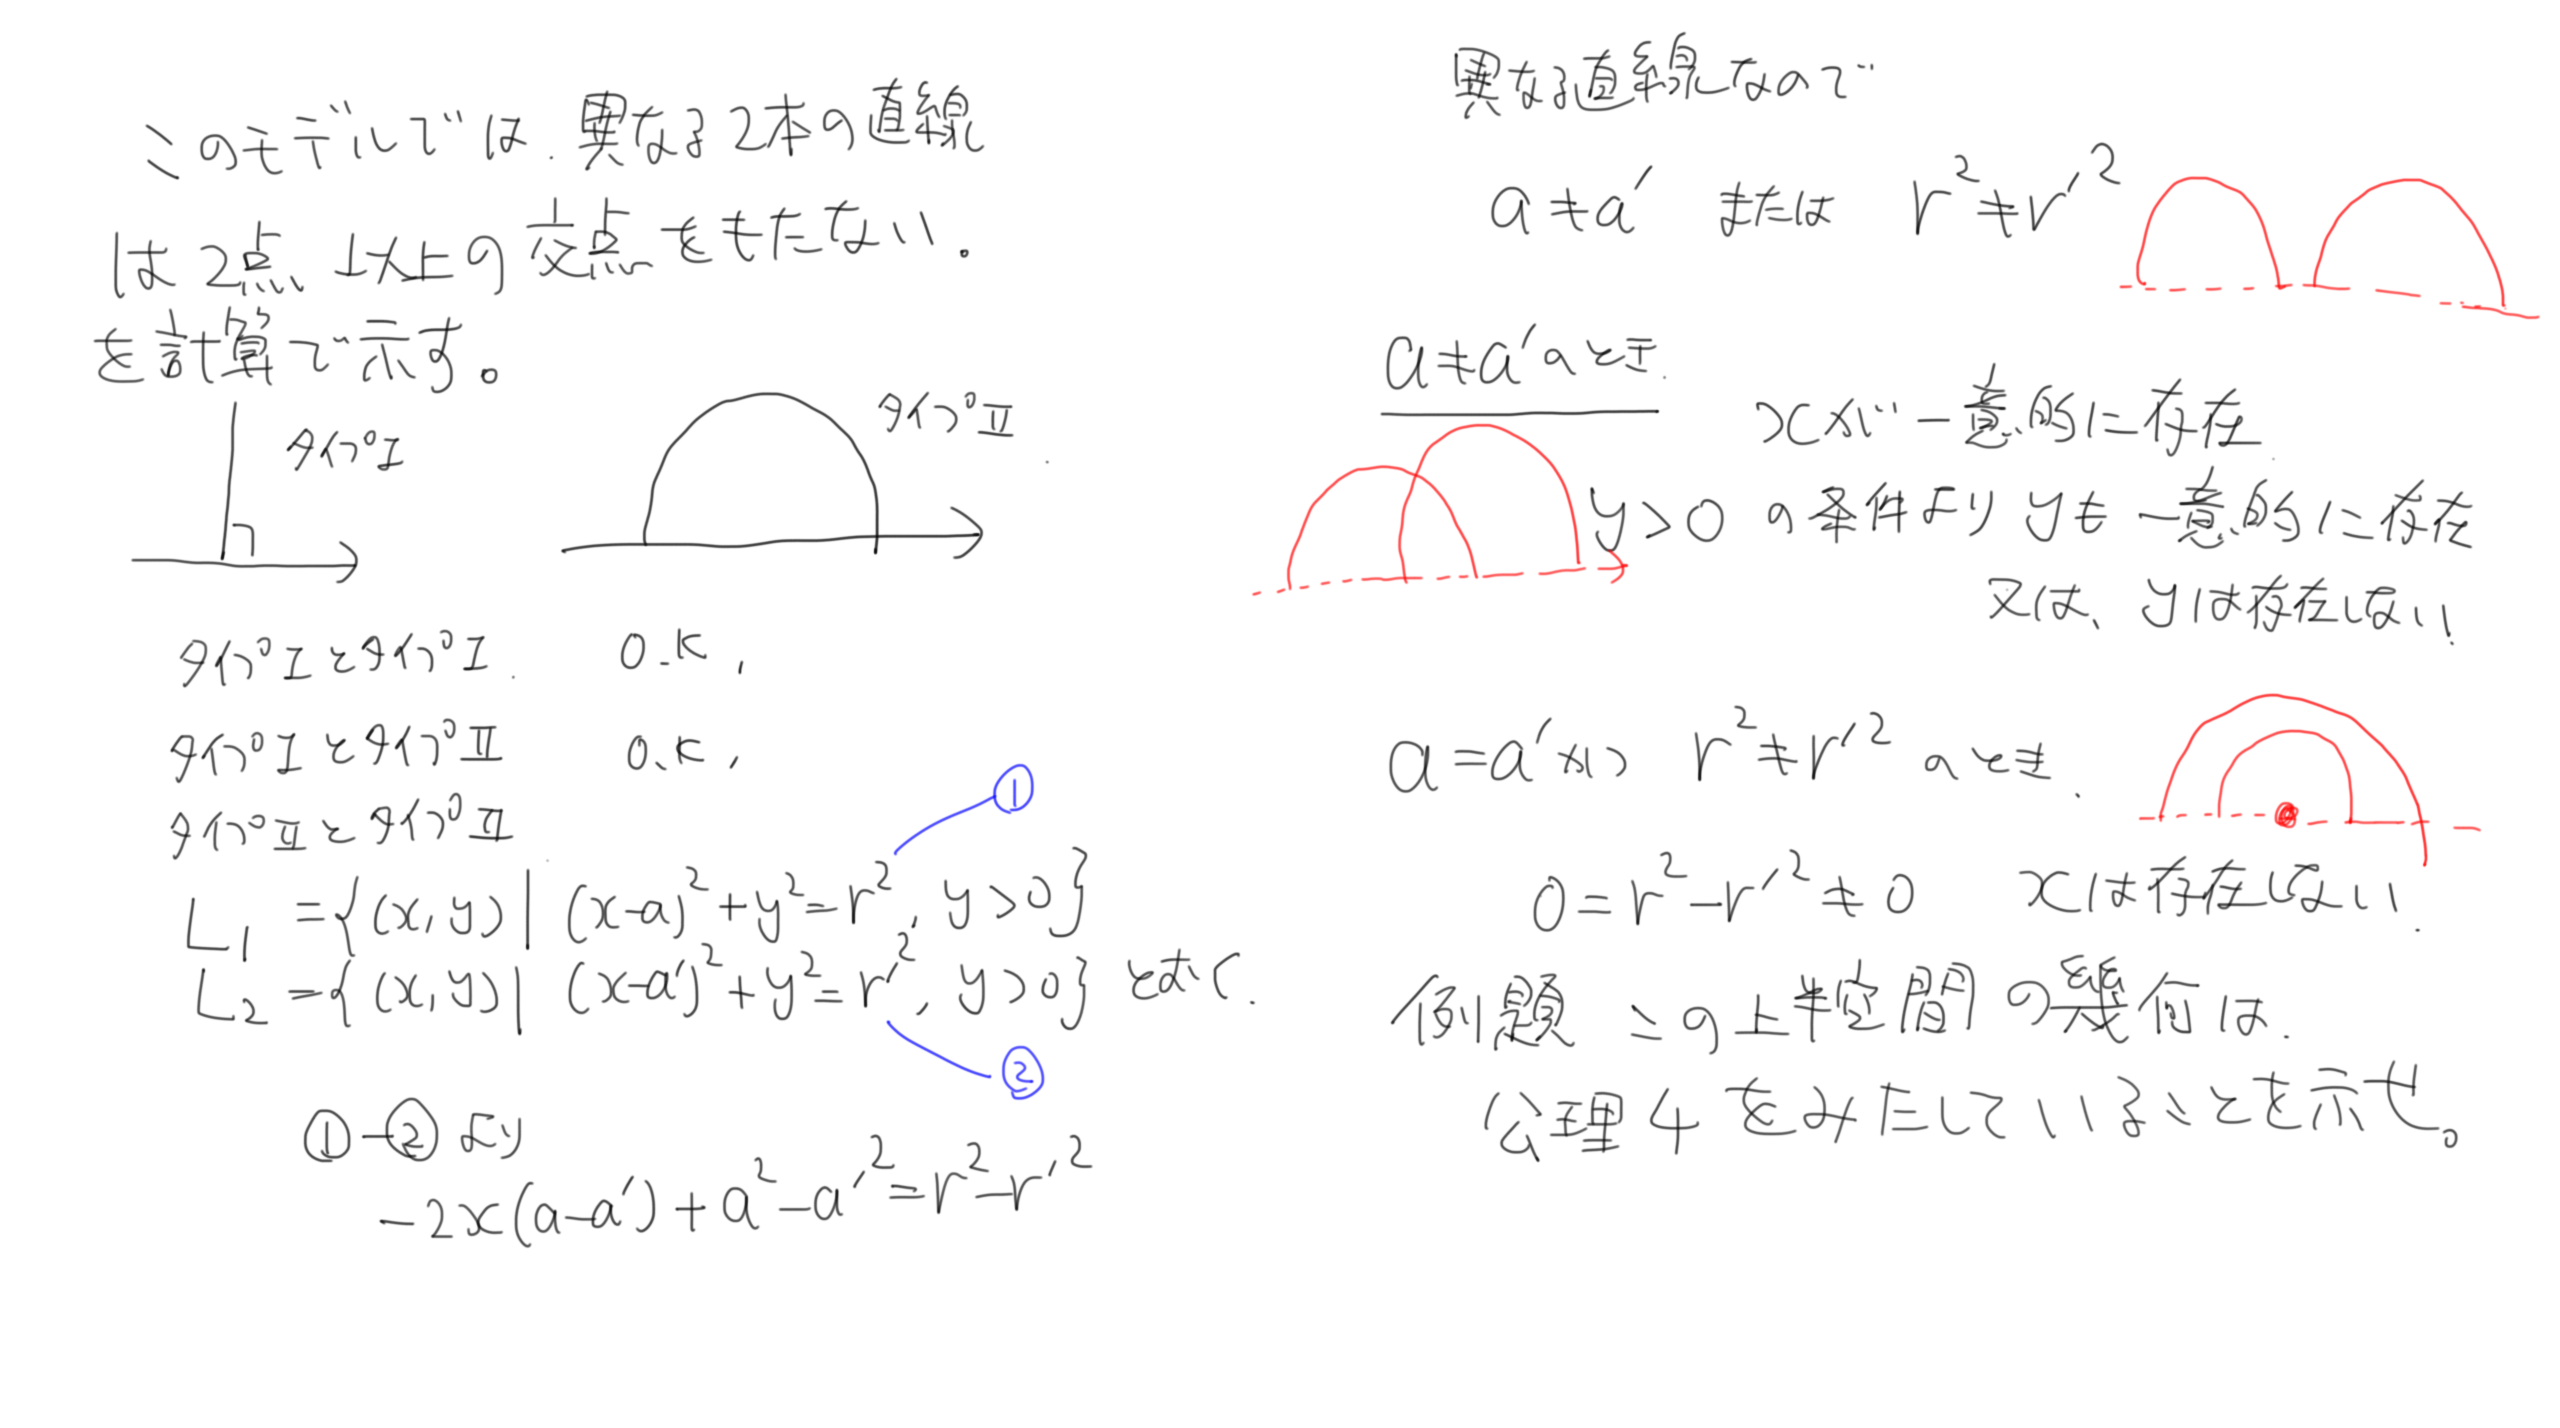 このモデルでは、異なる2本の直線
は2点以上の交点をもたない。
を計算で示す。
タイプI
タイプII
タイプIとタイプI O.K.
タイプIとタイプII O.K.
タイプIIとタイプII
①
L₁ = {(x, y) | (x-a)²+y²=r², y>0}
L₂ = {(x, y) | (x-a')²+y²=r'², y>0} とおく.
②
①-② より
-2x(a-a')+a²-a'²=r²-r'²
異なる直線なので
a≠a' または r²≠r'²
a≠a'のとき.
xが一意的に存在
y>0 の条件より yも一意的に存在
又は、yは存在しない.
a=a'かつ r²≠r'² のとき.
0=r²-r'²≠0 xは存在しない.
例題 この上半空間の幾何は.
公理4をみたしていることを示せ。